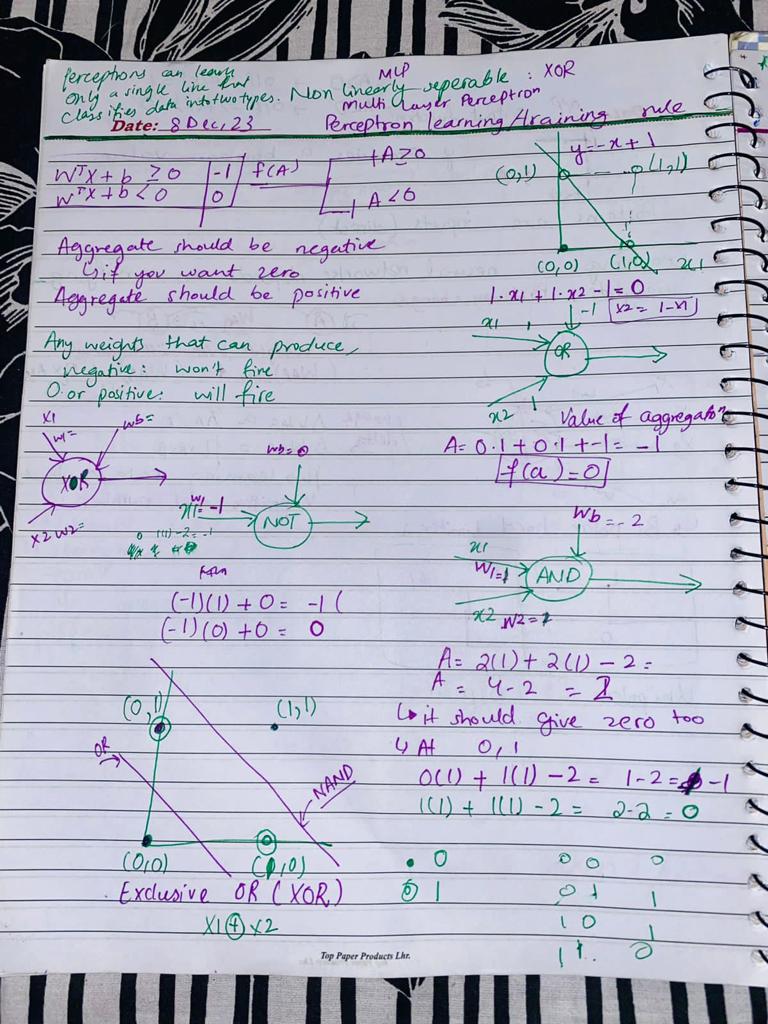 perceptrons can learn
only a single line that
classifies data into two types. Non linearly seperable : XOR
MLP
Multi Layer Perceptron
Date: 8 Dec, 23
Perceptron learning/training rule
WTX + b ≥ 0 | -1 | f(A) 1 A ≥ 0
WTX + b < 0 | 0 | A < 0
y = -x + 1
(0,1) (1,1)
(0,0) (1,0) x1
Aggregate should be negative
↳ if you want zero
Aggregate should be positive
1·x1 + 1·x2 - 1 = 0
x2 = 1-x1
Any weights that can produce,
negative: won't fire
0 or positive: will fire
x1 1 -1
OR
x2 1
Value of aggregator
A = 0·1 + 0·1 + -1 = -1
f(a) = 0
x1
w1= wb=
XOR
x2 w2=
wb = 0
x1 w1 = -1
NOT
(-1)(1) + 0 = -1
(-1)(0) + 0 = 0
Wb = -2
x1
W1 = 1
AND
x2 W2 = 1
A = 2(1) + 2(1) - 2 =
A = 4 - 2 = 2
↳ it should give zero too
↳ At 0,1
0(1) + 1(1) - 2 = 1-2 = -1
1(1) + 1(1) - 2 = 2-2 = 0
(0,1) (1,1)
OR
NAND
(0,0) (1,0)
Exclusive OR (XOR)
X1 ⊕ X2
• 0
⊙ 1
0 0 0
0 1 1
1 0 1
1 1 0
Top Paper Products Lhr.